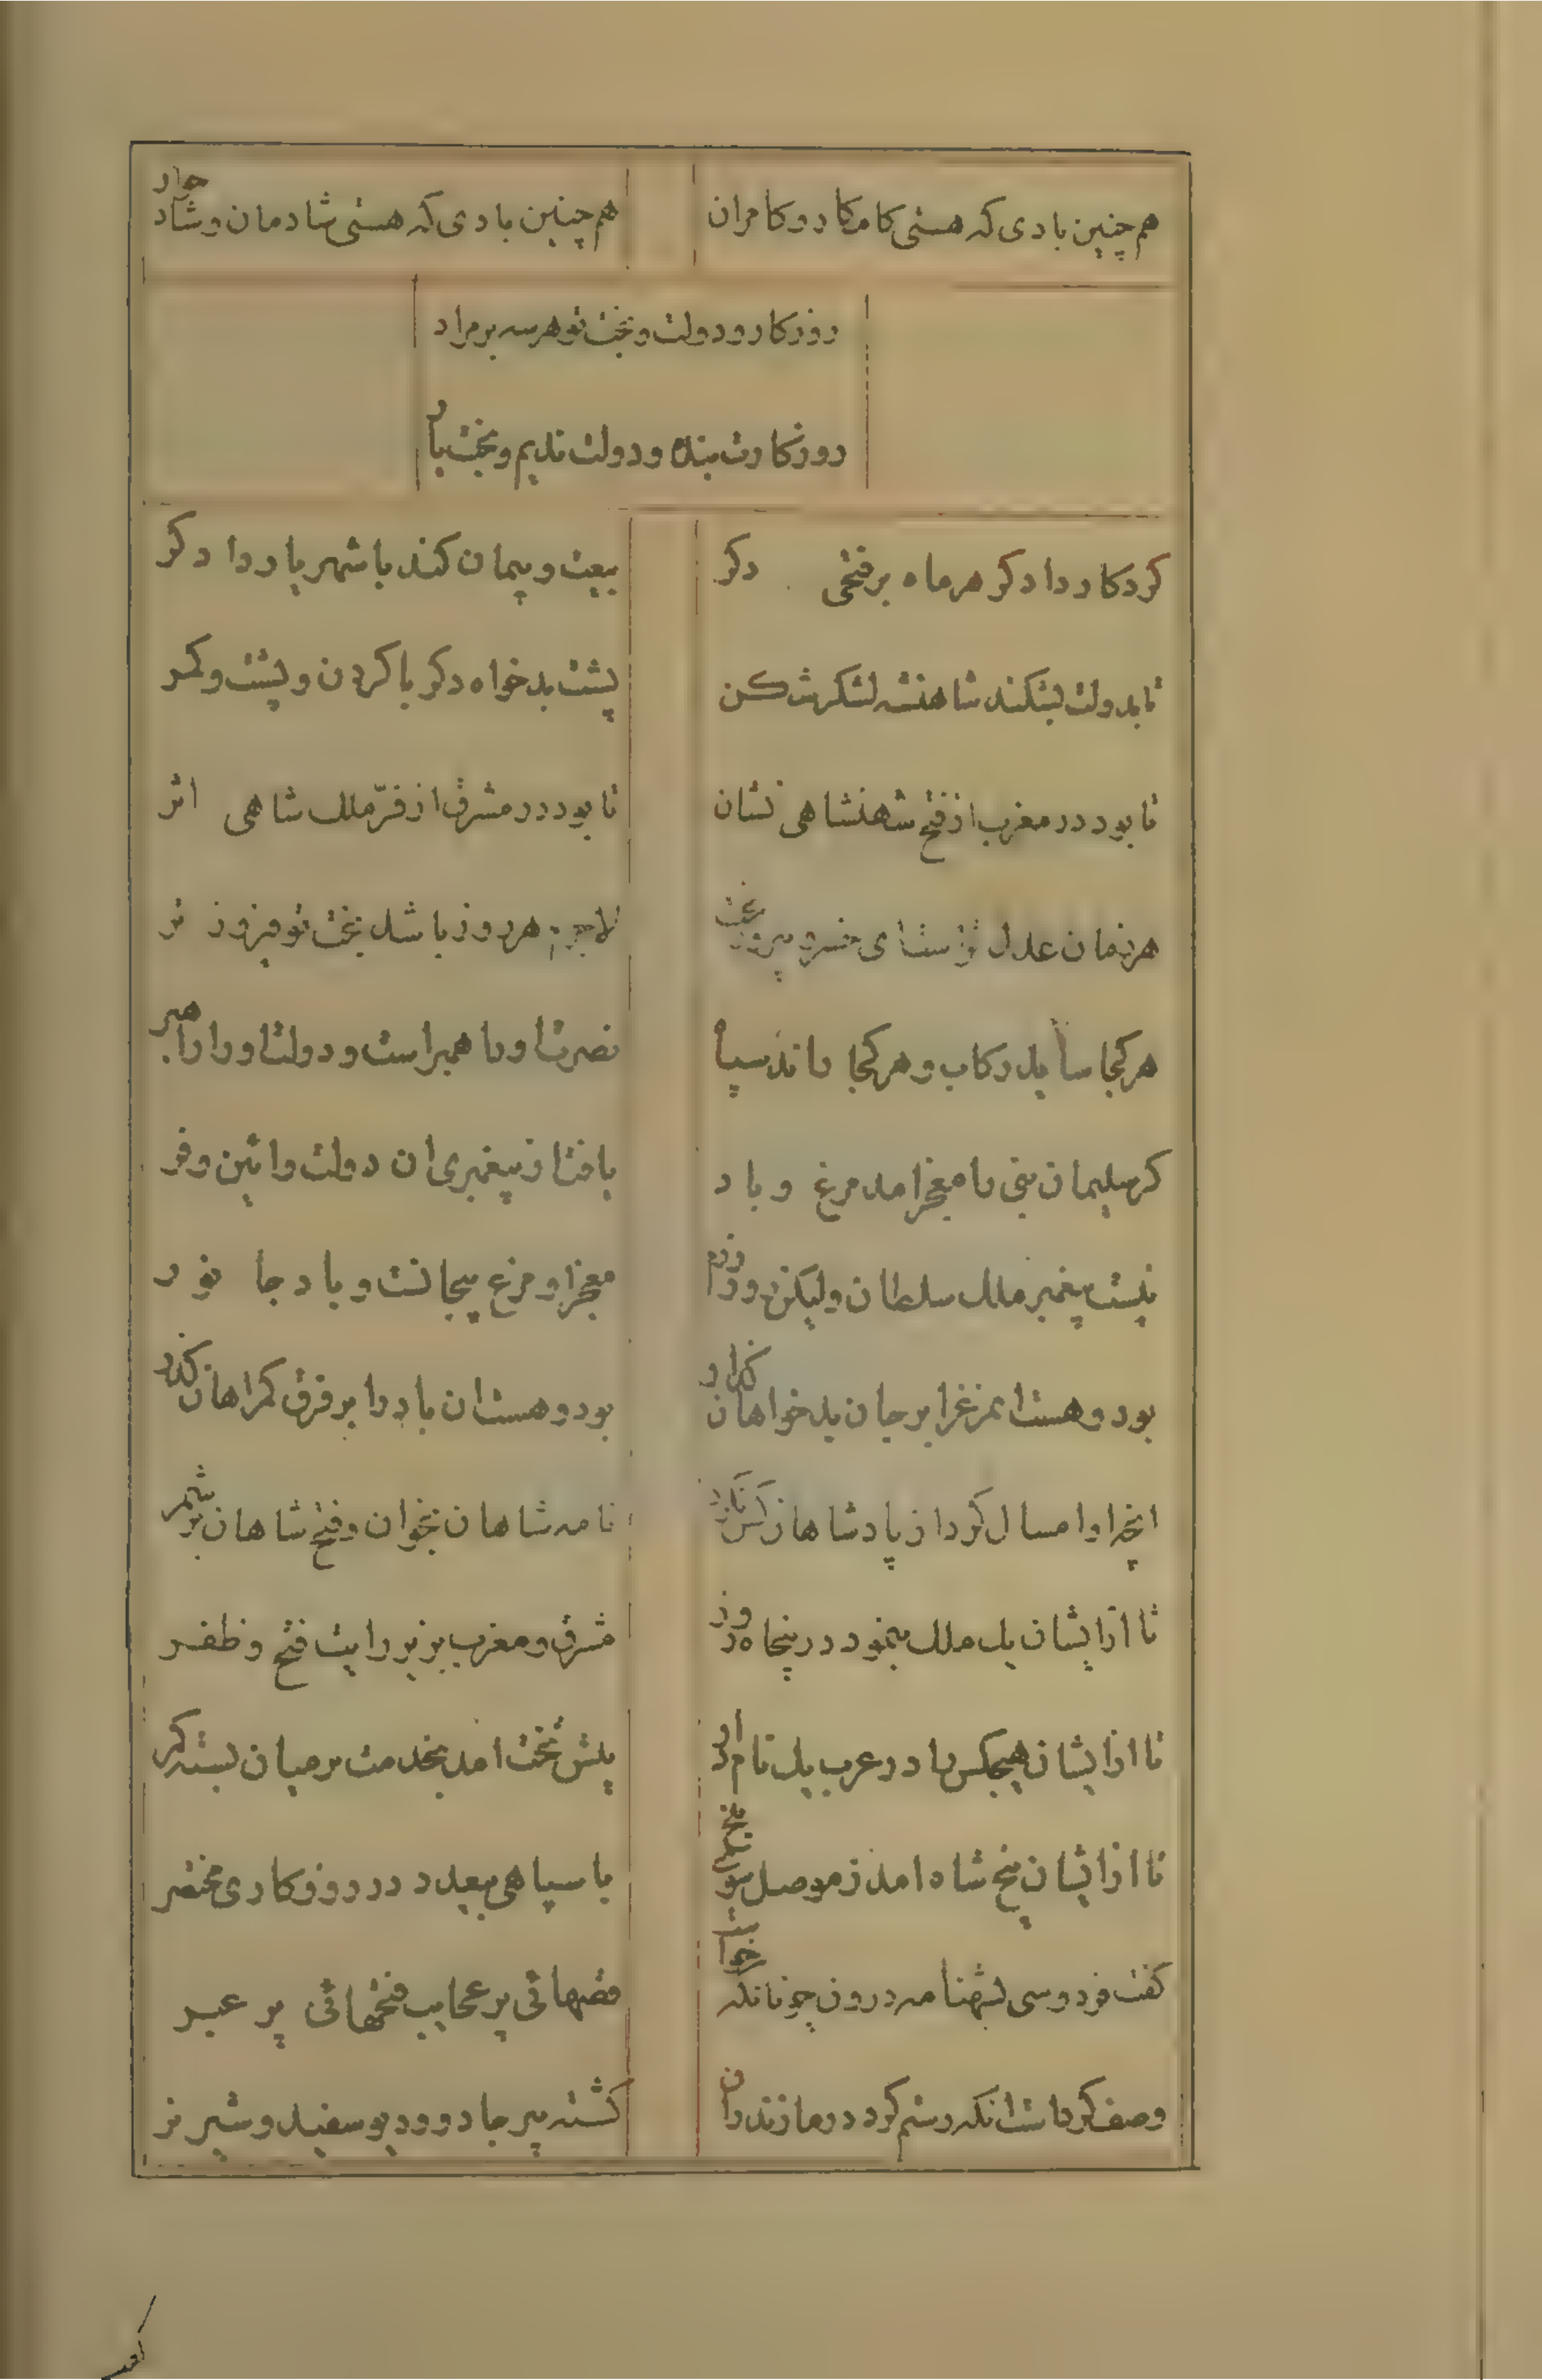 هم چنین بادی که هستی کامکار و کامران هم چنین بادی که هستی شادمان و شاد خوار
روزکار و دولت و بخت تو هر سه بر مراد
روزکارت بنده و دولت ندیم و بخت یار
کردکار دادکر هر ماه بر فتحی دکر بیعت و پیمان کند با شهریار دادکر
تا بدولت بشکند شاهنشه لشکرشکن پشت بدخواه دکر با کردن و پشت و کمر
تا بود در مغرب از فتح شهنشاهی نشان تا بود در مشرق از فرّ ملک شاهی اثر
هر زمان عدل تو است ای خسرو پیروز بخت لاجرم هر روز باشد بخت تو فیروز تر
هر کجا ساید رکاب و هر کجا راند سپاه نصرت او را همبر است و دولت او را راهبر
کر سلیمان نبی را معجز امد مرغ و باد یافت از پیغمبری ان دولت و ائین و فر
نیست پیغمبر ملک سلطان ولیکن روز رزم معجز او مرغ بیجانست و باد جانور
بود و هست این مرغ را بر جان بدخواهان کذار بود و هست ان باد را بر فرق کمراهان کذر
انچه او امسال کرد از پادشاهان کس نکرد نامه شاهان بخوان و فتح شاهان بر شمر
تا از ایشان یک ملک بنمود در پنجاه روز مشرق و مغرب بزیر رایت فتح و ظفر
تا از ایشان هیچکس را در عرب یک نام دار پیش تخت امد بخدمت بر میان بسته کمر
تا از ایشان پنج شاه امد ز موصل سوی بلخ با سپاهی بیعدد در روزکاری مختصر
کفت فردوسی بشهنامه درون چونانکه خواست قصهائی پر عجایب فتحهائی پر عبر
وصف کردست انکه رستم کرد در مازندران کشتن پیر جادو و دیو سفید و شیر نر